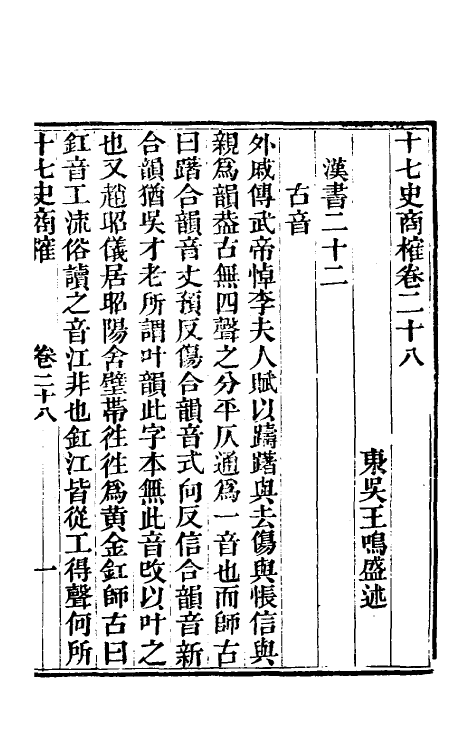 十七史商榷卷二十八
東吳王鳴盛述
漢書二十二
古音
外戚傳武帝悼李夫人賦以躊躇與去傷與悵信與
親為韻葢古無四聲之分平仄通為一音也而師古
曰躇合韻音丈預反傷合韻音式向反信合韻音新
合韻猶吳才老所謂叶韻此字本無此音改以叶之
也又趙昭儀居昭陽舍璧帶徃徃為黄金釭師古曰
釭音工流俗讀之音江非也釭江皆從工得聲何所
十七史商榷　卷二十八　一